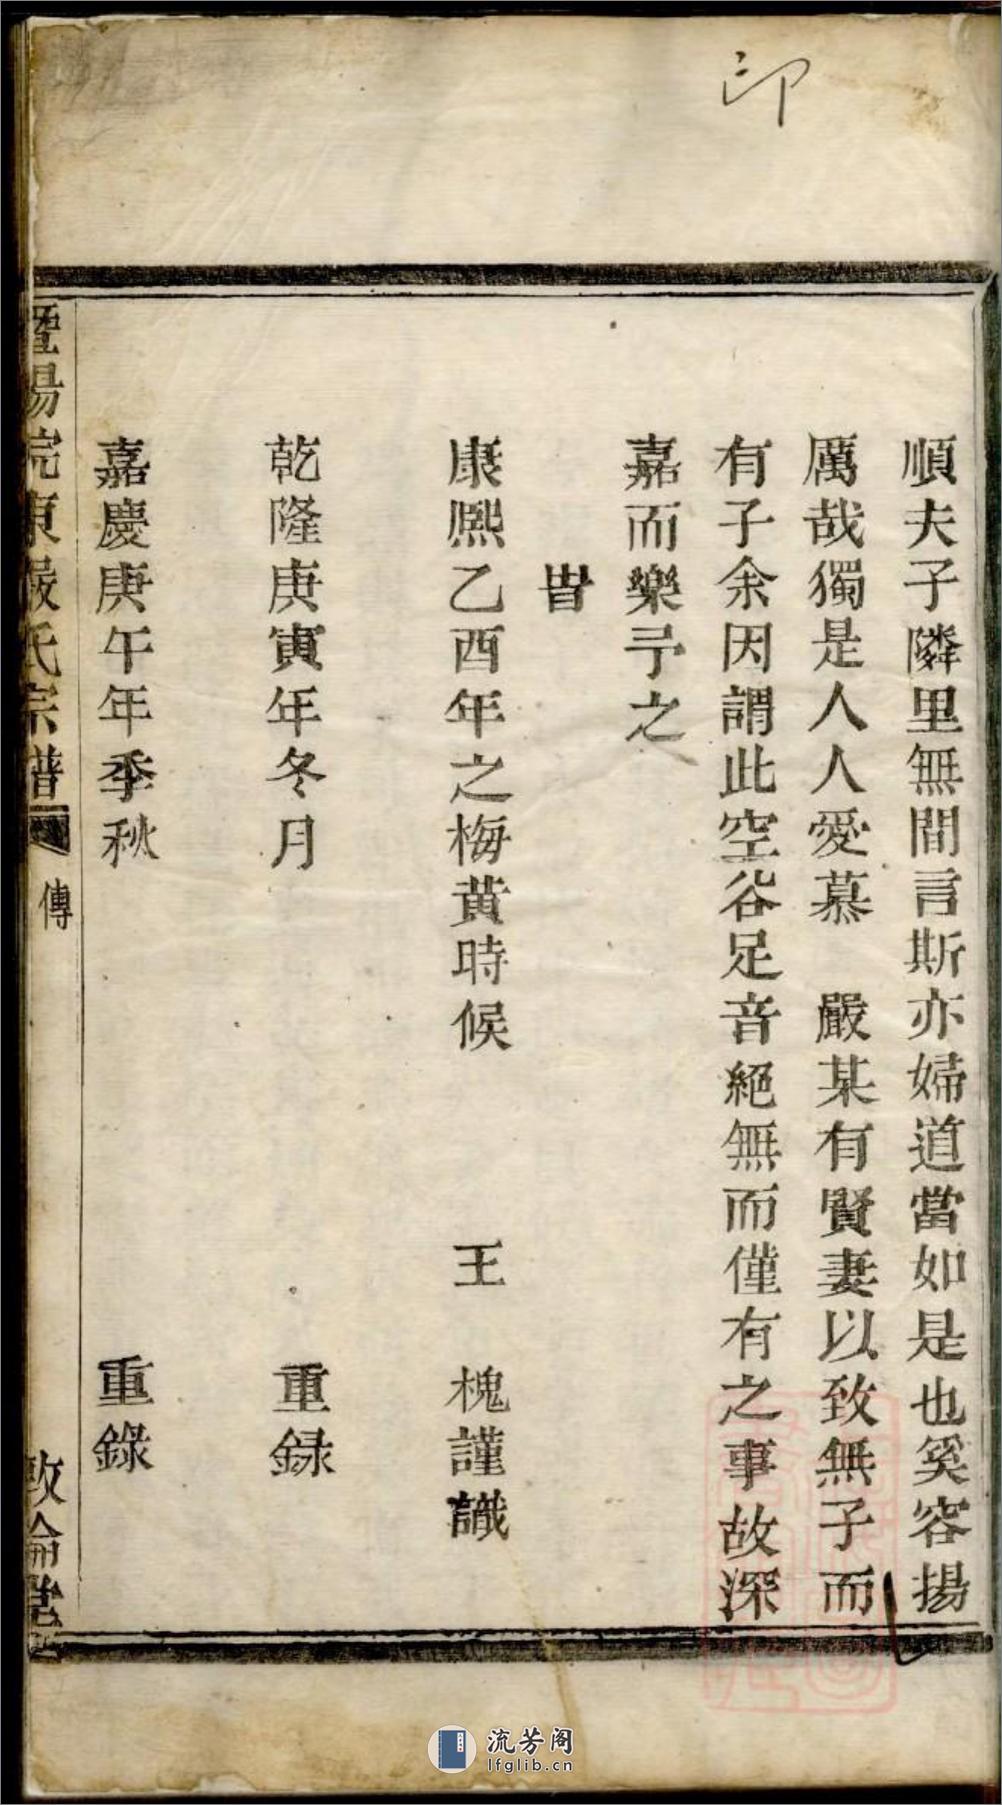 印
順夫子隣里無間言斯亦婦道當如是也奚容揚
厲哉獨是人人愛慕　嚴某有賢妻以致無子而
有子余因謂此空谷足音絕無而僅有之事故深
嘉而樂予之
旹
康熙乙酉年之梅黄時候　王　槐謹識
乾隆庚寅年冬月　重録
嘉慶庚午年季秋　重錄
暨陽院東嚴氏宗譜　傳　敦倫堂
流芳阁
lfglib.cn